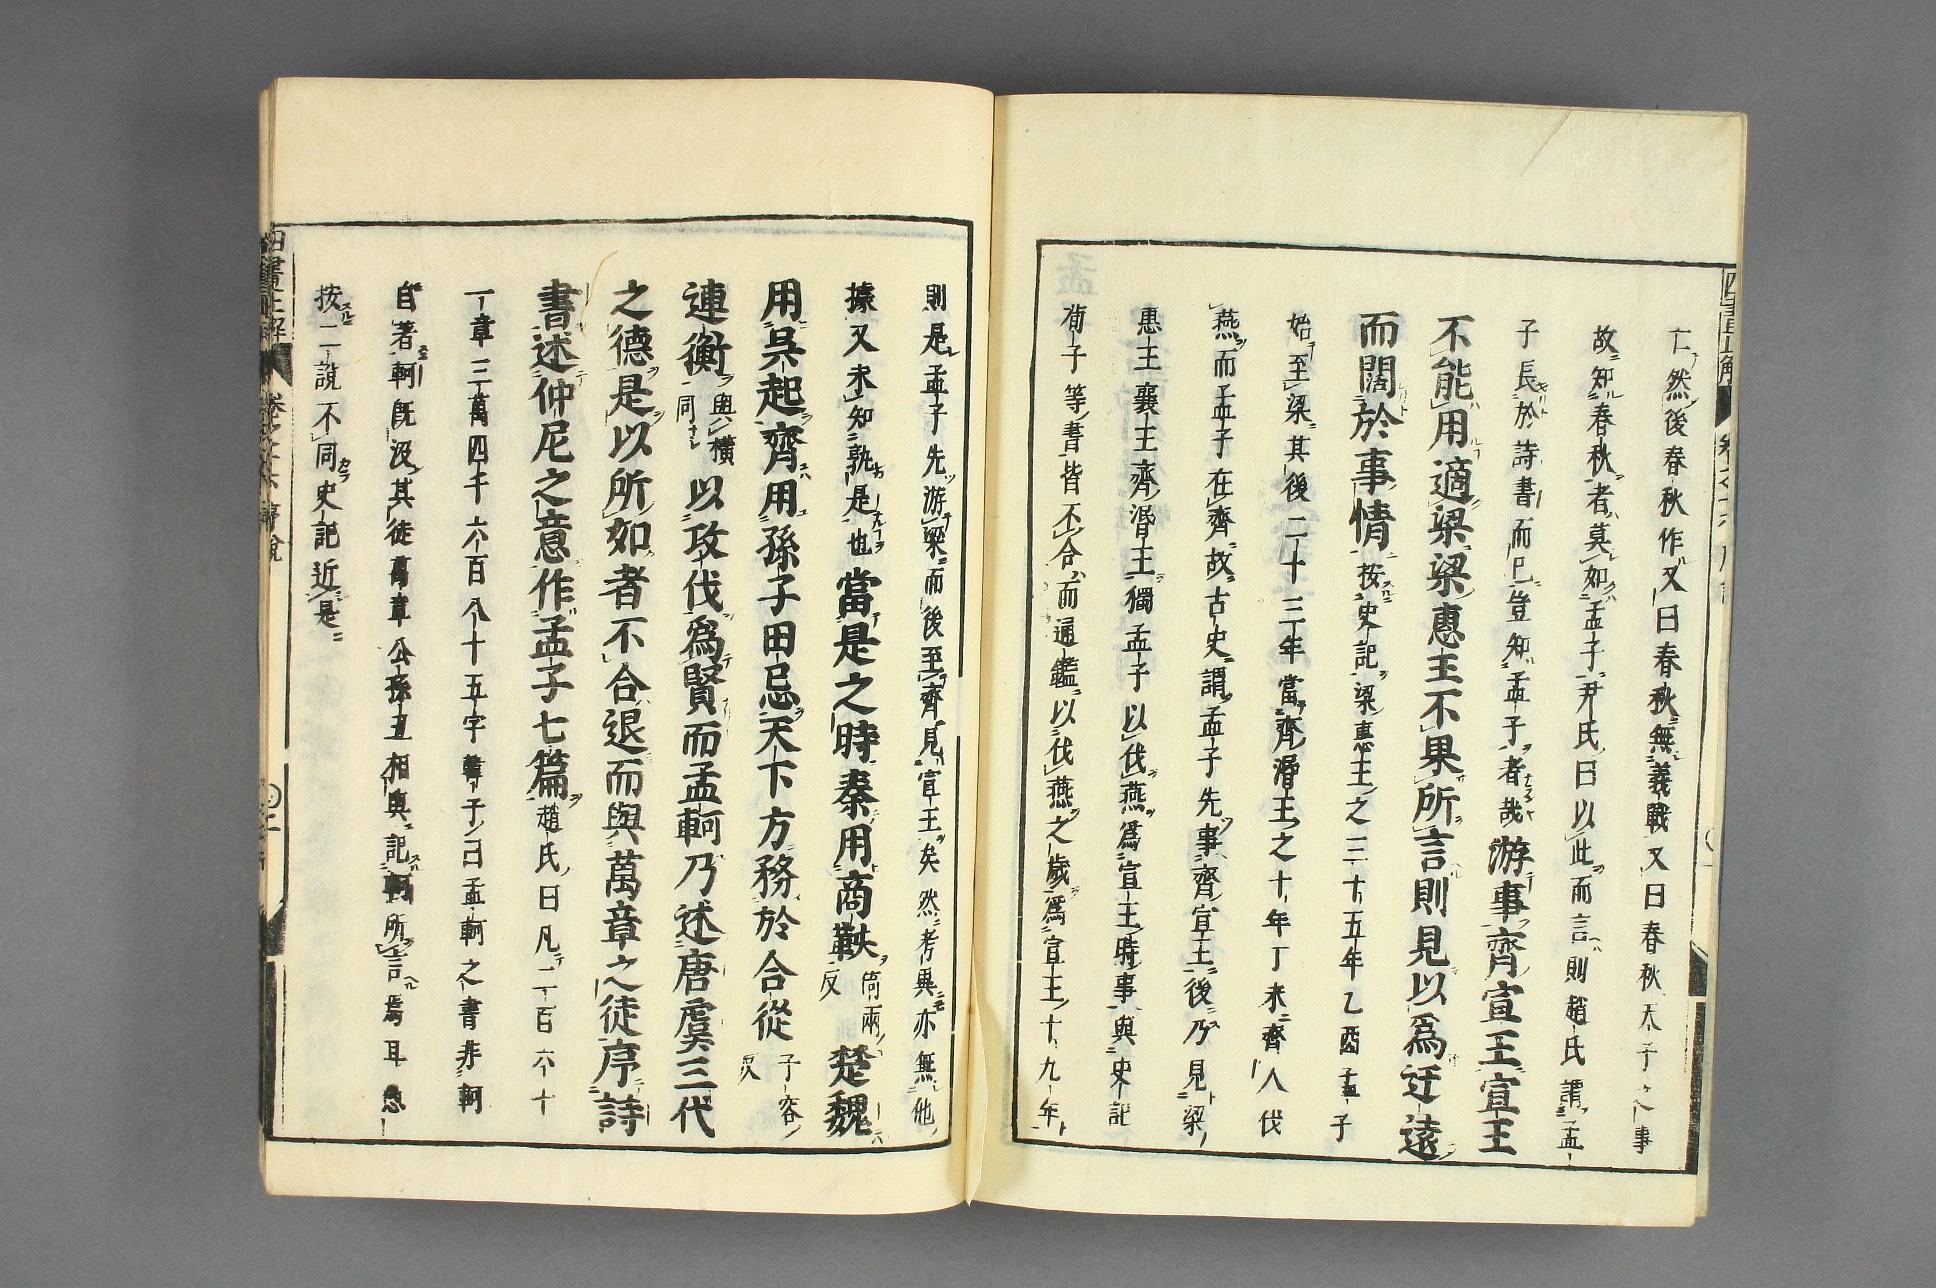 亡然後春秋作又曰春秋無義戰又曰春秋天子之事
故知春秋者莫如孟子尹氏曰以此而言則趙氏謂孟
子長於詩書而巳豈知孟子者哉游事齊宣王宣王
不能用適梁梁惠王不果所言則見以爲迂遠
而闊於事情按史記梁惠王之三十五年乙酉孟子
始至梁其後二十三年當齊湣王之十年丁未齊人伐
燕而孟子在齊故古史謂孟子先事齊宣王後乃見梁
惠王襄王齊湣王獨孟子以伐燕爲宣王時事與史記
荀子等書皆不合而通鑑以伐燕之歲爲宣王十九年
則是孟子先游梁而後至齊見宣王矣然考異亦無他
據又未知孰是也當是之時秦用商鞅倚兩反楚魏
用吳起齊用孫子田忌天下方務於合從子容反
連衡與橫同以攻伐爲賢而孟軻乃述唐虞三代
之德是以所如者不合退而與萬章之徒序詩
書述仲尼之意作孟子七篇趙氏曰凡二百六十
一章三萬四千六百八十五字韓子曰孟軻之書非軻
自著軻旣沒其徒萬章公孫丑相與記軻所言焉耳愚
按二說不同史記近是